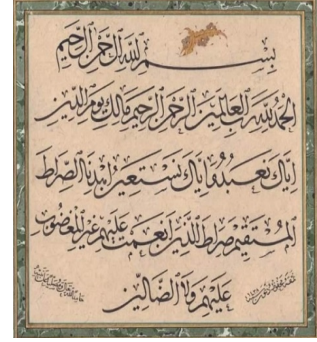 بسم الله الرحمن الرحيم
الحمد لله رب العالمين الرحمن الرحيم مالك يوم الدين
اياك نعبد واياك نستعين اهدنا الصراط
المستقيم صراط الذين انعمت عليهم غير المغضوب
عليهم ولا الضالين